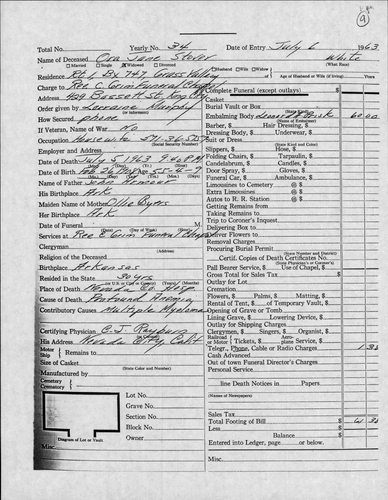 9
Total No. Yearly No. 34 Date of Entry July 6 1963
Name of Deceased Ora Jane Stover White
Married Single Widowed Divorced (What Race)
Residence Rt. 1 Bx 747, Grass Valley
Husband or Wife Widow
Age of Husband or Wife (if living) Years
Charge to Ree C Grim Funeral Chapel
Address 409 Bassett St. King City
Order given by Lorraine Murphy
(or informant)
How Secured phone
If Veteran, Name of War No
Occupation Housewife
(Social Security Number)
Employer and Address
Date of Death July 5 1963 9:40 P M
Date of Birth Feb 26
Name of Father John Armour
His Birthplace Ark
Maiden Name of Mother Ollie Byrns
Her Birthplace Ark.
Date of Funeral M
Services at Ree C Grim Funeral Chapel
Clergyman
(Address)
Religion of the Deceased
Birthplace Arkansas
Resided in the State 30 yrs
Place of Death Nevada Co. Hosp
Cause of Death Profound Anemia
Contributory Causes Multiple Myeloma
Certifying Physician C. J.
His Address Nevada City Calif
Motor
Ship Remains to
Size of Casket
(State Color and Number)
Manufactured by
Cemetery
Crematory
Lot No.
Grave No.
Section No.
Block No.
Owner
Diagram of Lot or Vault
Misc.
Complete Funeral (except outlays) $
Casket
Burial Vault or Box
(State Kind)
Embalming Body 60 00
(Name of Embalmer)
Barber, $ Hair Dressing, $
Dressing Body, $ Underwear, $
Suit or Dress
(State Kind and Color)
Slippers, $ Hose, $
Folding Chairs, $ Tarpaulin, $
Candelabrum, $ Candles, $
Door Spray, $ Gloves, $
Funeral Car, $ Ambulance, $
Limousines to Cemetery @ $
Extra Limousines @ $
Autos to R. R. Station @ $
Getting Remains from
Taking Remains to
Trip to Coroner's Inquest
Delivering Box to
Deliver Flowers to
Removal Charges
Procuring Burial Permit
(State Number and District)
Certif. Copies of Death Certificates No.
(State Physician's or Coroner's)
Pall Bearer Service, $ Use of Chapel, $
Gross Total for Sales Tax $
Outlay for Lot
Cremation
Flowers, $ Palms, $ Matting, $
Rental of Tent, $ of Temporary Vault, $
Opening of Grave or Tomb
Lining Grave, $ Lowering Device, $
Outlay for Shipping Charges
Clergymen, $ Singers, $ Organist, $
Railroad or Motor Tickets, $ Aeroplane Service, $
Telegr., Phone, Cable or Radio Charges 1 30
Cash Advanced
Out of town Funeral Director's Charges
Personal Service
line Death Notices in Papers
(Names of Newspapers)
Sales Tax
Total Footing of Bill $ 61 30
Less
Balance $
Entered into Ledger, page or below.
Misc.